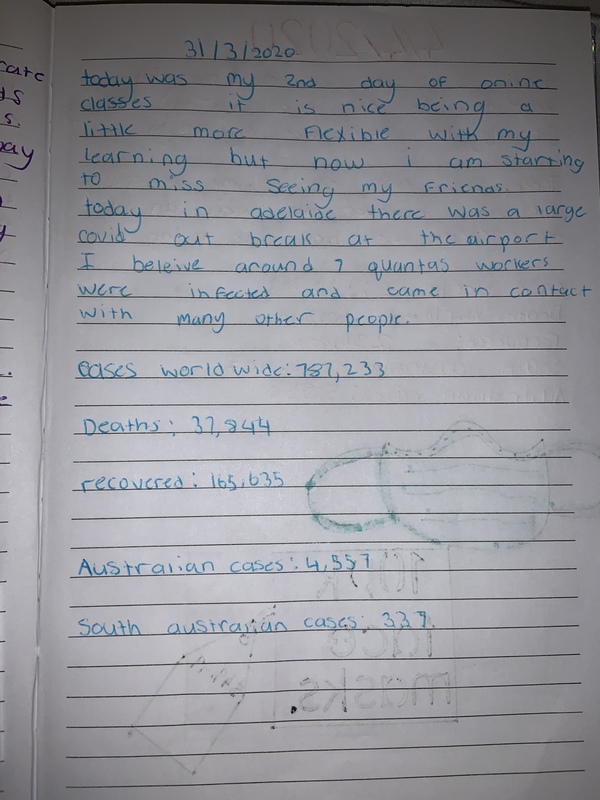 31/3/2020
today was my 2nd day of onine
classes it is nice being a
little more Flexible with my
learning but now i am starting
to miss seeing my Friends.
today in adelaide there was a large
covid out break at the airport
I beleive around 7 quantas workers
were infected and came in contact
with many other people.
Cases world wide: 787,233
Deaths: 37,844
recovered: 165,635
Australian cases: 4,557
South australian cases: 337.